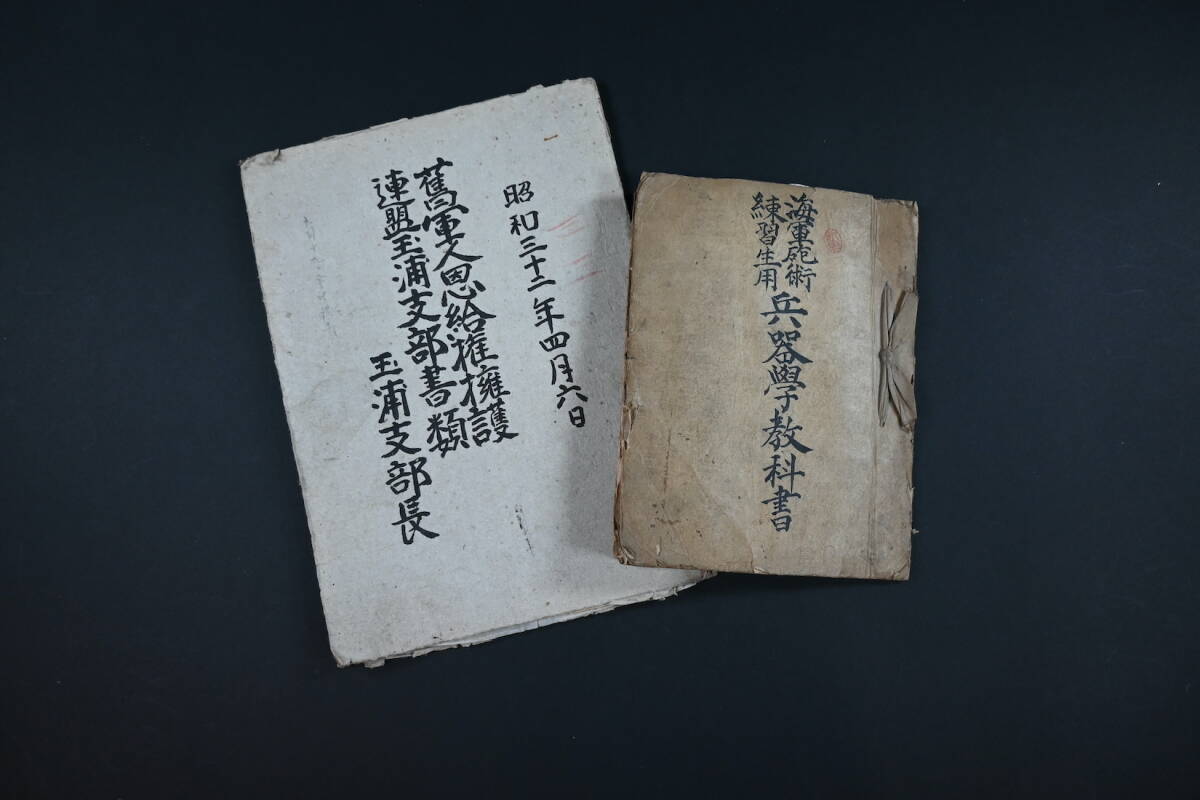 昭和三十二年四月六日
舊軍人恩給権擁護
連盟玉浦支部書類
玉浦支部長
海軍砲術
練習生用
兵器學教科書